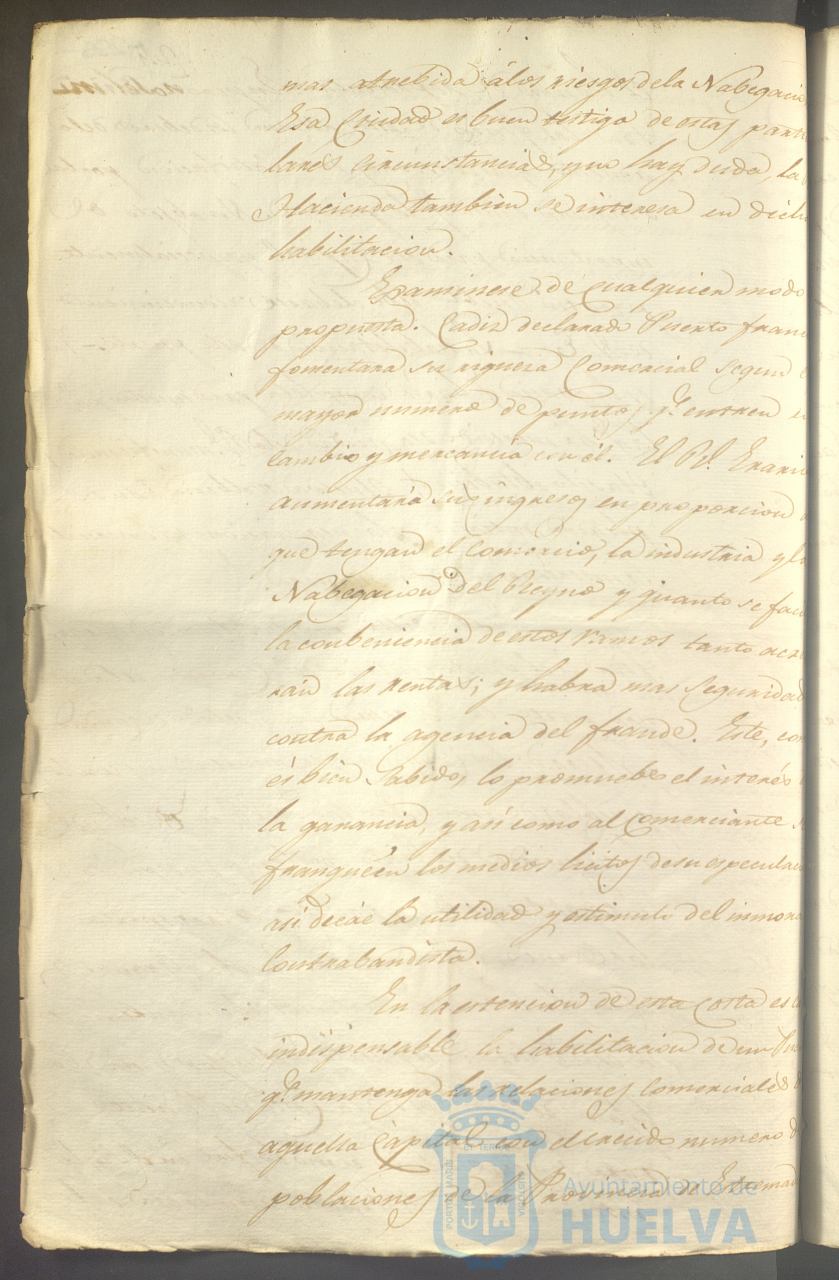 mas atrebida á los riesgos de la Nabegacio
Esa Ciudad es buen testigo de estas parti
lares circunstancias, y no hay duda, la
Hacienda tambien se interesa en dich
habilitacion.
Examinese de cualquier modo
propuesta. Cadiz declarado Puerto fran
fomentara su riqueza Comercial segun e
mayor numero de puntos qe. entren en
cambio y mercancia con él. El Rl. Erario
aumentará sus ingresos en proporcion
que tengan el Comercio, la industria y la
Nabegacion del Reyno y quanto se fac
la conbeniencia de estos ramos tanto acre
ran las rentas; y habra mas seguridad
contra la agencia del fraude. Este, co
és bien sabido, lo promuebe el interés
la ganancia, y asi como al Comerciante
franqueén los medios licitos de su especulac
asi decáe la utilidad y estimulo del inmora
Contrabandista.
En la estencion de esta Costa es
indispensable la habilitacion de un Pu
qe. mantenga las relaciones Comerciales
aquella Capital con el crecido numero de
poblaciones de la Provincia de Estremad
PORTUS MARIS ET TERRAE CUSTODIA
Ayuntamiento de
HUELVA